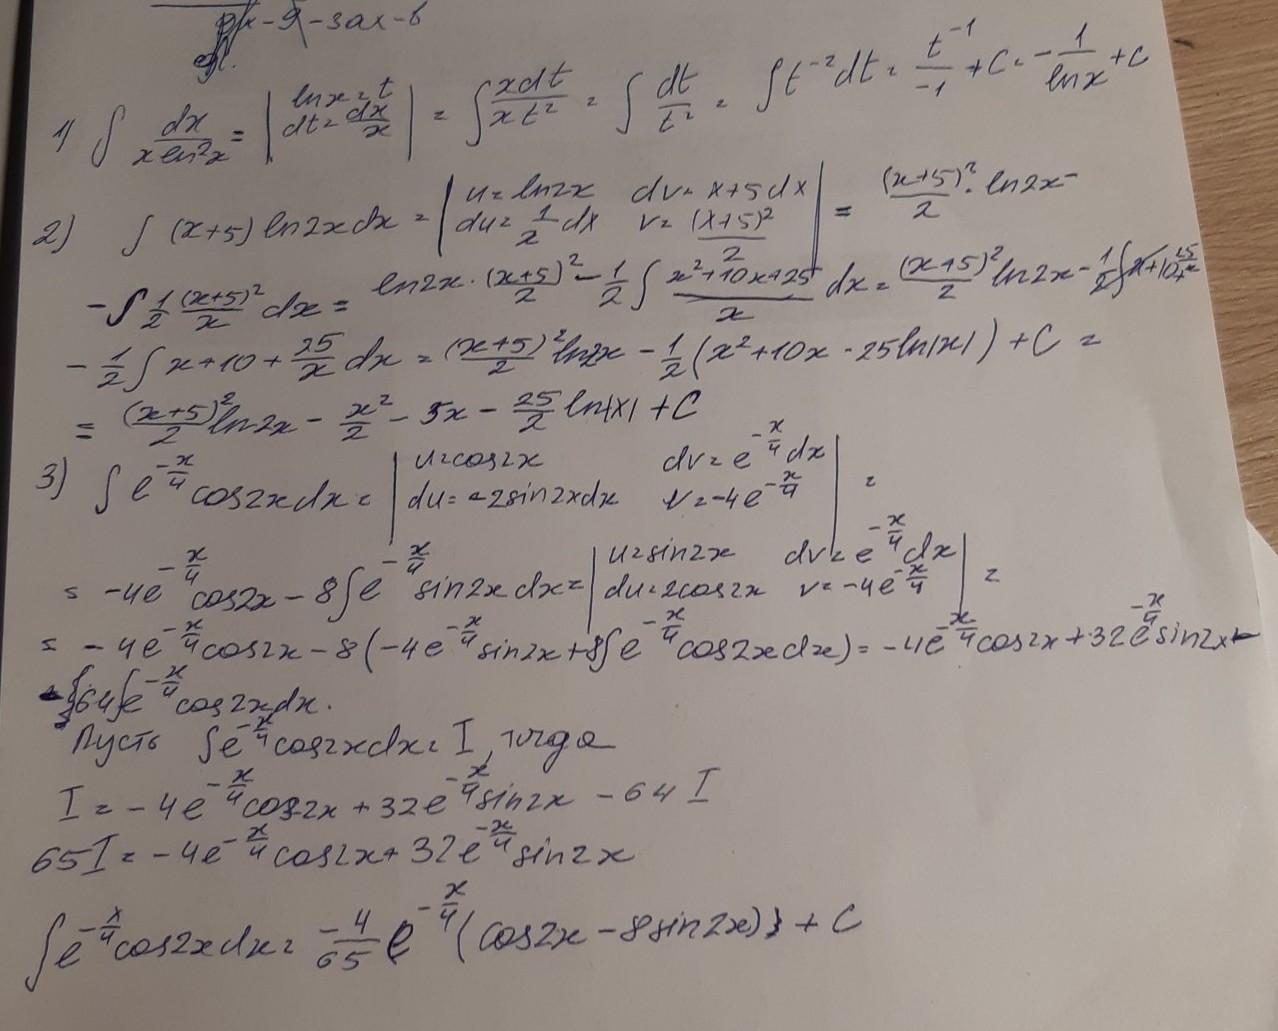 -3ax-b
1) ∫ dx/(x ln²x) = | ln x = t dt = dx/x | = ∫ xdt/(xt²) = ∫ dt/t² = ∫ t⁻²dt = t⁻¹/-1 + C = -1/ln x + C
2) ∫ (x+5) ln2x dx = | u = ln2x dv = x+5 dx du = 1/x dx v = (x+5)²/2 | = (x+5)²/2 · ln2x -
- ∫ 1/2 (x+5)²/x dx = ln2x · (x+5)²/2 - 1/2 ∫ (x²+10x+25)/x dx = (x+5)²/2 ln2x -
- 1/2 ∫ x+10+25/x dx = (x+5)²/2 ln2x - 1/2 (x²+10x-25ln|x|) + C =
= (x+5)²/2 ln2x - x²/2 - 5x - 25/2 ln|x| + C
3) ∫ e^(-x/4) cos2x dx = | u = cos2x dv = e^(-x/4) dx du = -2sin2x dx v = -4e^(-x/4) | =
= -4e^(-x/4) cos2x - 8∫ e^(-x/4) sin2x dx = | u = sin2x dv = e^(-x/4) dx du = 2cos2x v = -4e^(-x/4) | =
= -4e^(-x/4) cos2x - 8(-4e^(-x/4) sin2x + 8∫ e^(-x/4) cos2x dx) = -4e^(-x/4) cos2x + 32e^(-x/4) sin2x -
- 64∫ e^(-x/4) cos2x dx.
Пусть ∫ e^(-x/4) cos2x dx = I, тогда
I = -4e^(-x/4) cos2x + 32e^(-x/4) sin2x - 64 I
65I = -4e^(-x/4) cos2x + 32e^(-x/4) sin2x
∫ e^(-x/4) cos2x dx = -4/65 e^(-x/4) (cos2x - 8sin2x) + C